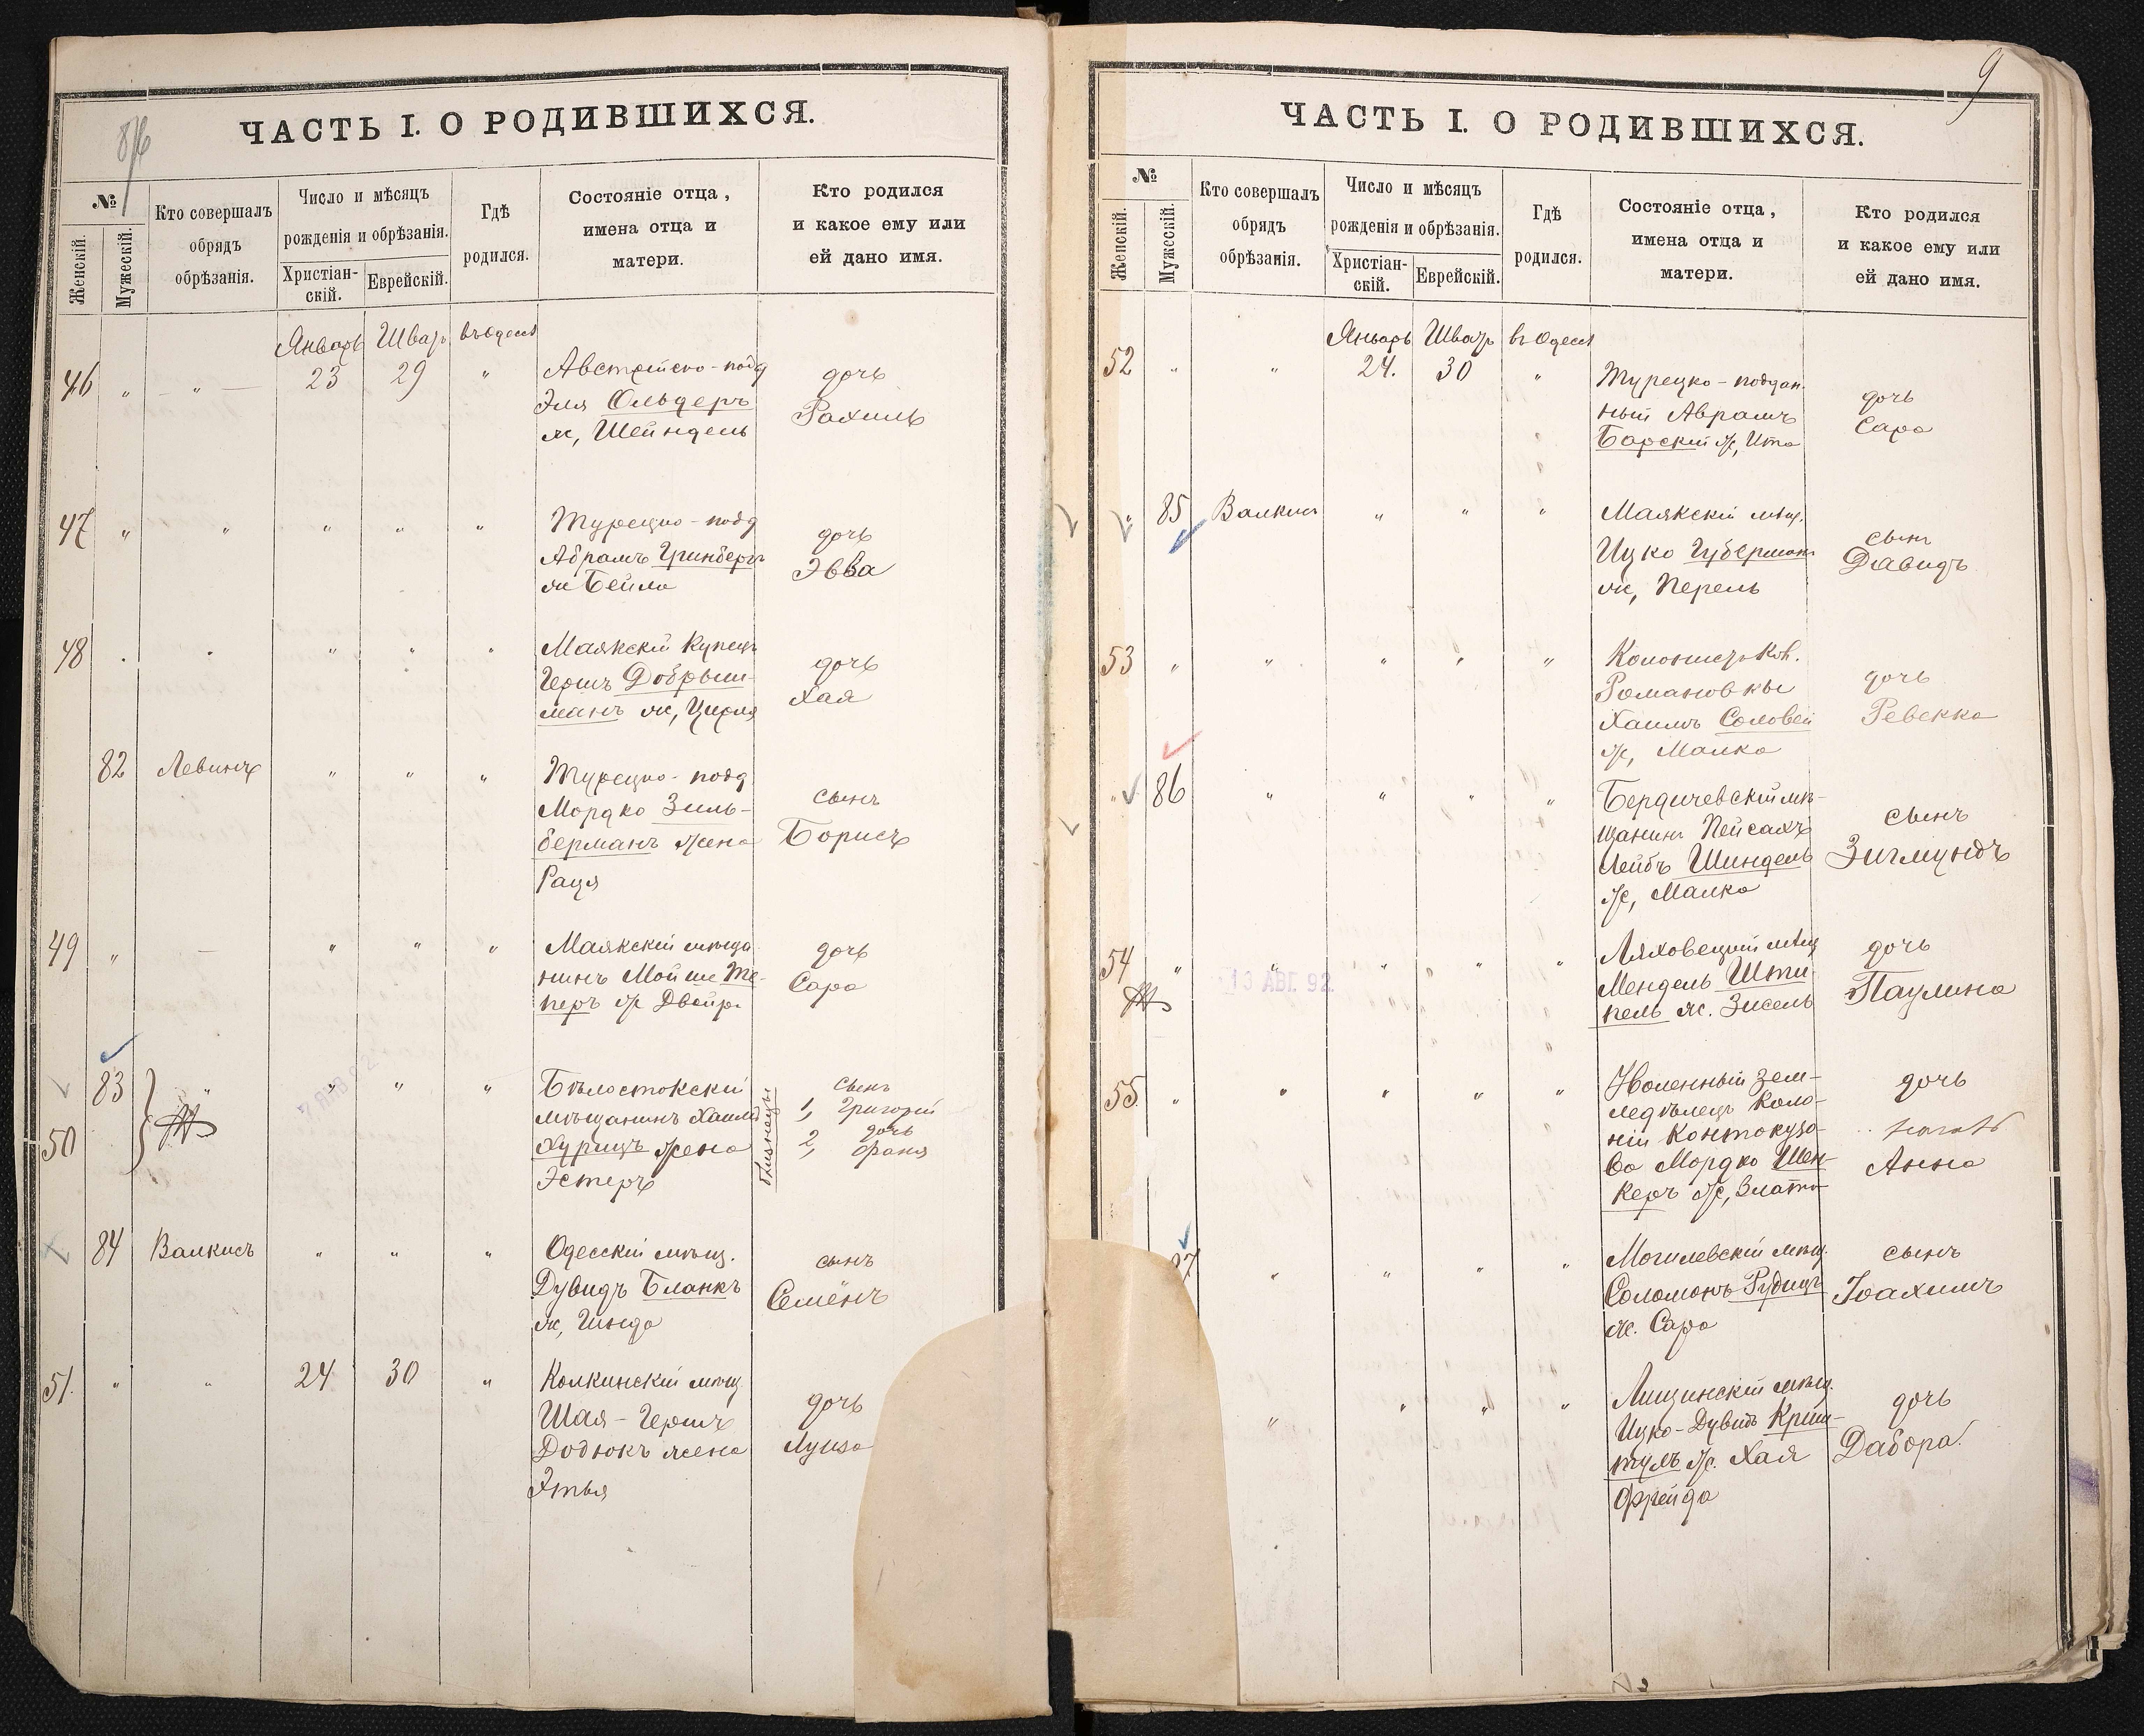 8/16
ЧАСТЬ I. О РОДИВШИХСЯ.
№
Женскій.
Мужескій.
Кто совершалъ
обрядъ
обрѣзанія.
Число и мѣсяцъ
рожденія и обрѣзанія.
Христіан-
скій.
Еврейскій.
Гдѣ
родился.
Состояніе отца,
имена отца и
матери.
Кто родился
и какое ему или
ей дано имя.
Январь Шватъ въ Одессѣ
46 " " — 23 29 " Австрійско-подд дочь
Эля Ольдеръ Рахиль
ж, Шейндель
47 " " " " " Турецко-подд дочь
Абрамъ Гринбергъ Эвва
ж Бейла
48 " " " " " Маякскій Купецъ дочь
Гершъ Добрыш- Хая
манъ ж, Цирля
82 Левинъ " " " Турецко-подд
Мордко Зиль- сынъ
берманъ жена Борисъ
Рася
49 " — " " " Маякскій мѣща- дочь
нинъ Мойше Те- Сара
перъ ж Двойра
83 " " " " Бѣлостокскій сынъ
мѣщанинъ Хаимъ 1, Григорій
50 Хурицъ жена 2, дочь
Фаня
Эстеръ
близнецы
84 Валкисъ " " " Одесскій мѣщ. сынъ
Дувидъ Бланкъ Семёнъ
ж, Гинда
51. " " 24 30 " Колкинскій мѣщ
Шая-Гершъ дочь
Додюкъ жена Луиза
Этья
9
ЧАСТЬ I. О РОДИВШИХСЯ.
№
Женскій.
Мужескій.
Кто совершалъ
обрядъ
обрѣзанія.
Число и мѣсяцъ
рожденія и обрѣзанія.
Христіан-
скій.
Еврейскій.
Гдѣ
родился.
Состояніе отца,
имена отца и
матери.
Кто родился
и какое ему или
ей дано имя.
Январь Шватъ въ Одессѣ
52 " " 24. 30 " Турецко-поддан.
ный Абрамъ дочь
Барскій ж, Ита Сара
" 85 Валкисъ " " " Маякскій мѣщ. сынъ
Ицко Губерманъ Давидъ
ж, Перель
53 " " " " " Колонистъ Кол.
Романовки дочь
Хаимъ Соловей Ревекка
ж, Малка
" 86 " " " " Бердичевскій мѣ-
щанинъ Пейсахъ сынъ
Лейбъ Шиндель Зигмундъ
ж, Малка
54 " " " " " Ляховецкій мѣщ дочь
13 АВГ. 92.
Мендель Шти- Паулина
пель ж. Зисель
55. " " " " " земле-
дѣлецъ Коло- дочь
ніи
ва Мордко Шен- Анна
керъ ж, Злата
87 " " " " Могилевскій мѣщ. сынъ
Соломонъ Рудицъ Іоахимъ
ж. Сара
" " " " мѣщ. дочь
Ицко-Дувидъ Криш- Дабора.
тулъ ж. Хая
Фрейда